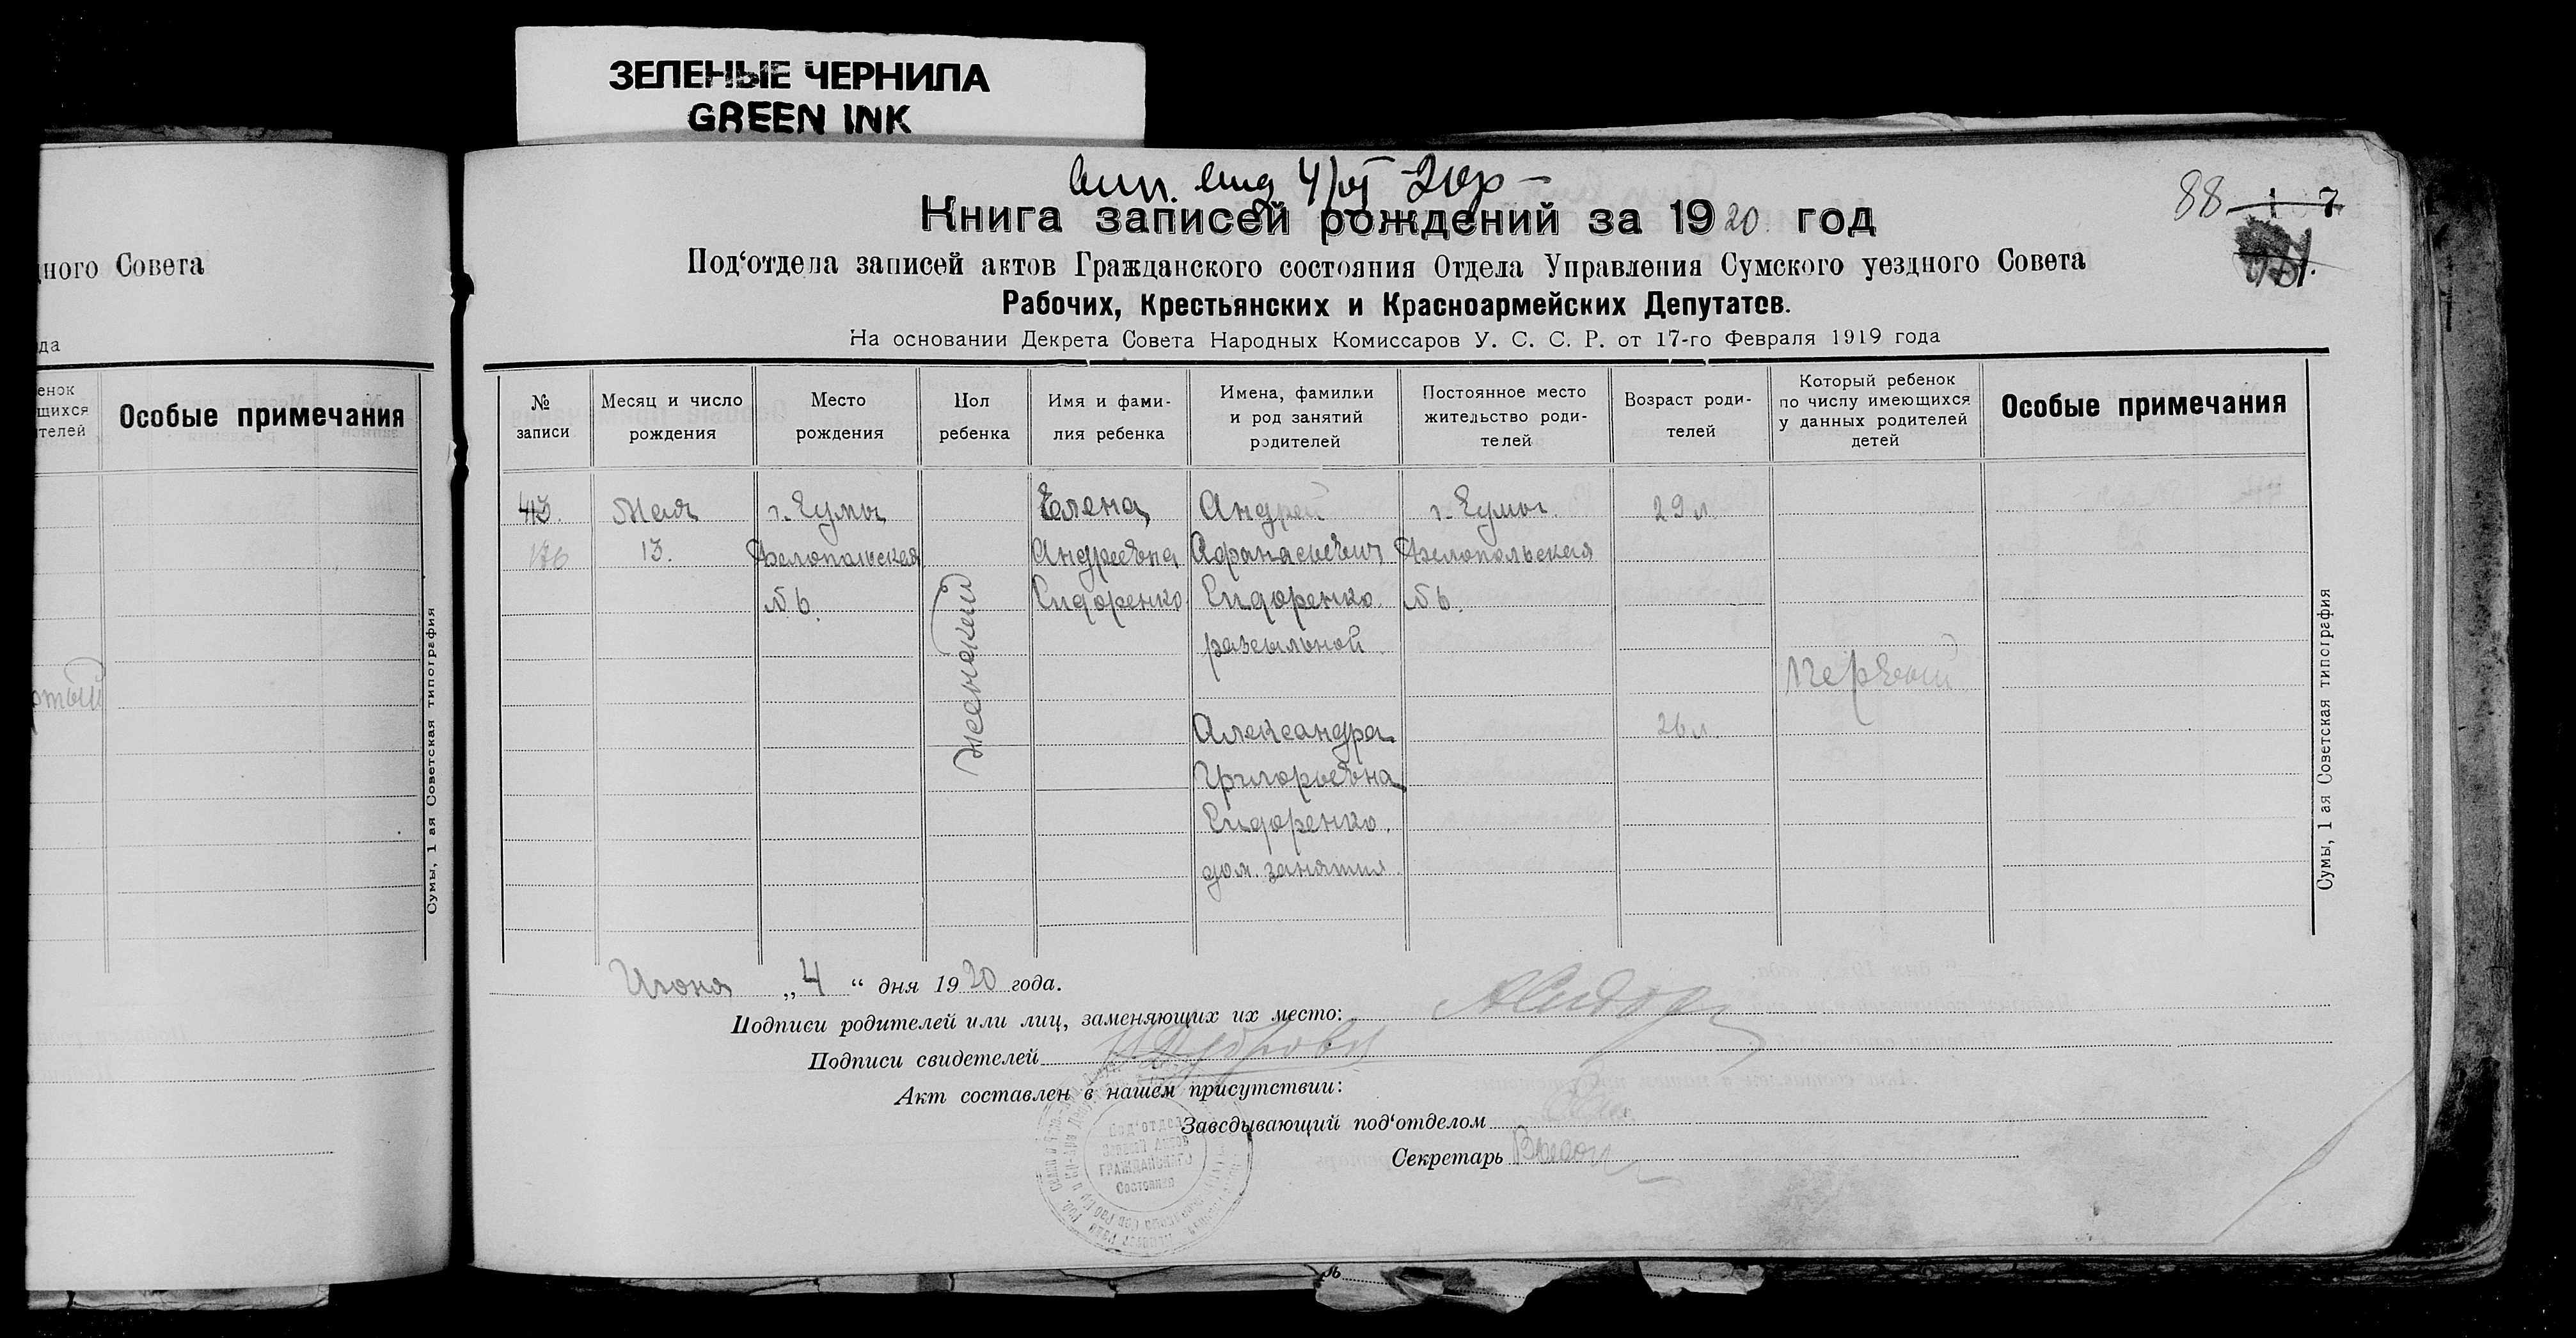 ЗЕЛЕНЫЕ ЧЕРНИЛА
GREEN INK
4/VI 20р
88 1 7
Книга записей рождений за 1920 год
Под‘отдела записей актов Гражданского состояния Отдела Управления Сумского уездного Совета
Рабочих, Крестьянских и Красноармейских Депутатов.
На основании Декрета Совета Народных Комиссаров У. С. С. Р. от 17-го Февраля 1919 года
дного Совета
да
енок
щихся
телей
Особые примечания
ртый
Сумы, 1 ая Советская типография
№ записи
Месяц и число рождения
Место рождения
Пол ребенка
Имя и фамилия ребенка
Имена, фамилии и род занятий родителей
Постоянное место жительство родителей
Возраст родителей
Который ребенок по числу имеющихся у данных родителей детей
Особые примечания
Мая
13.
г. Сумы
Белопольская
№ 6.
женский
Елена
Андреевна
Сидоренко
Андрей
Афанасьевич
Сидоренко.
разсыльной
Александра
Григорьевна
Сидоренко.
дом. занятия.
г. Сумы.
Белопольская
№ 6.
29 л.
26 л.
Первый
Сумы, 1 ая Советская типография
Июня „4“ дня 1920 года.
Подписи родителей или лиц, заменяющих их место: АСидор
Подписи свидетелей
Акт составлен в нашем присутствии:
Заведывающий под‘отделом
Секретарь
Под‘отдел
Записей Актов
ГРАЖДАНСКОГО
Состояния